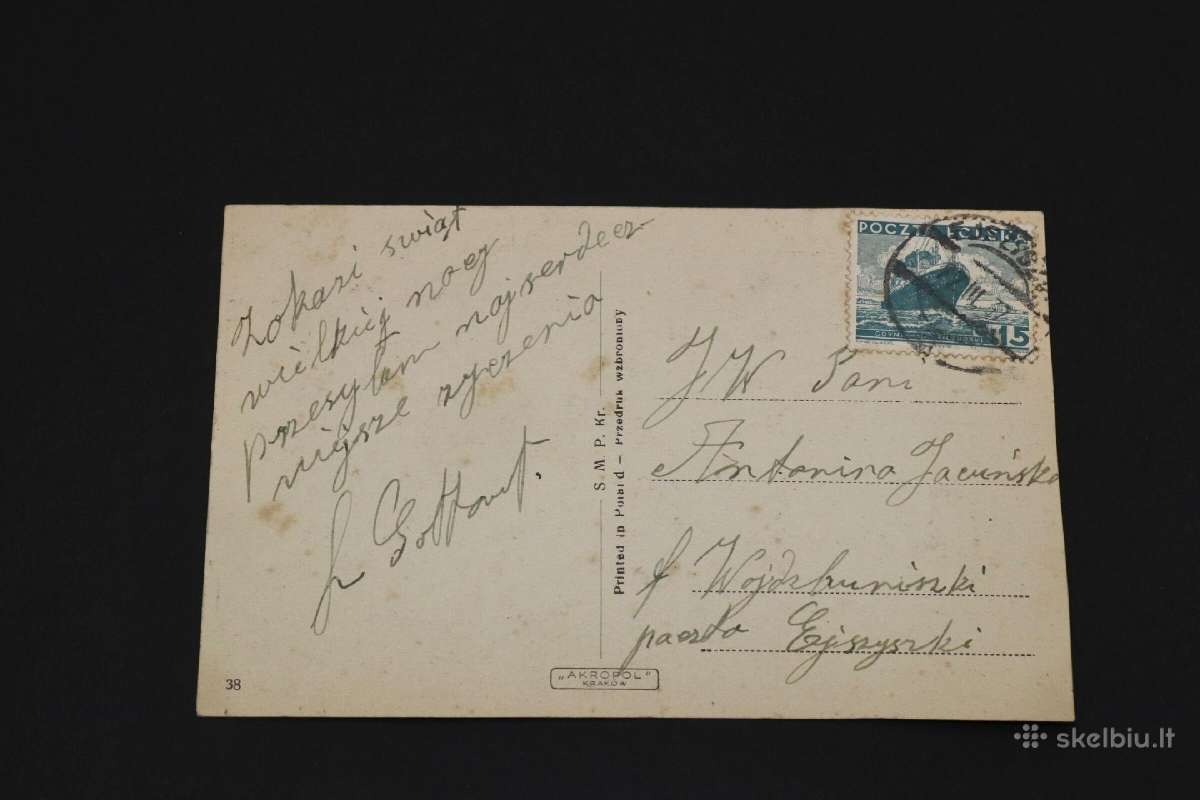 zokazi świąt
wielkiej nocy
przesyłam najserdecz
niejsze zyczenia
S. M. P. Kr.
Printed in Poland – Przedruk wzbroniony
POCZTA POLSKA
15
JW Pani
Antonina Jacuńska
f Wojdzbuniszki
paczta Ejszyszki
38
„AKROPOL"
KRAKÓW
skelbiu.lt